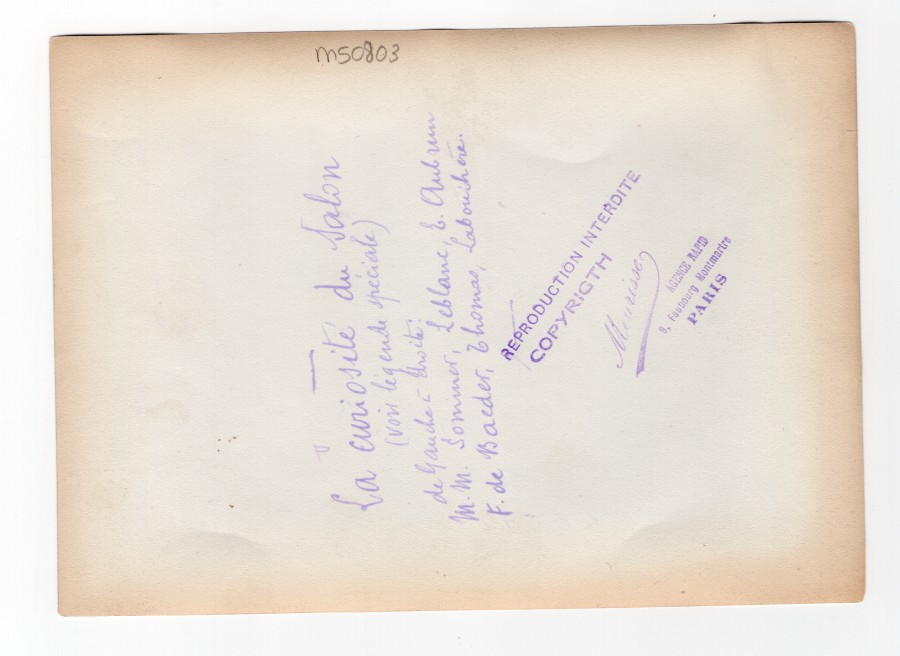 m50803
La curiosité du Salon
(voir légende spéciale)
de Gauche à droite:
M. M. Sommer, Leblanc, E. Aubrun
F. de Baeder, Thomas, Labouchère.
REPRODUCTION INTERDITE
COPYRIGTH
Meurisse
AGENCE RAPID
9, Faubourg Montmartre
PARIS